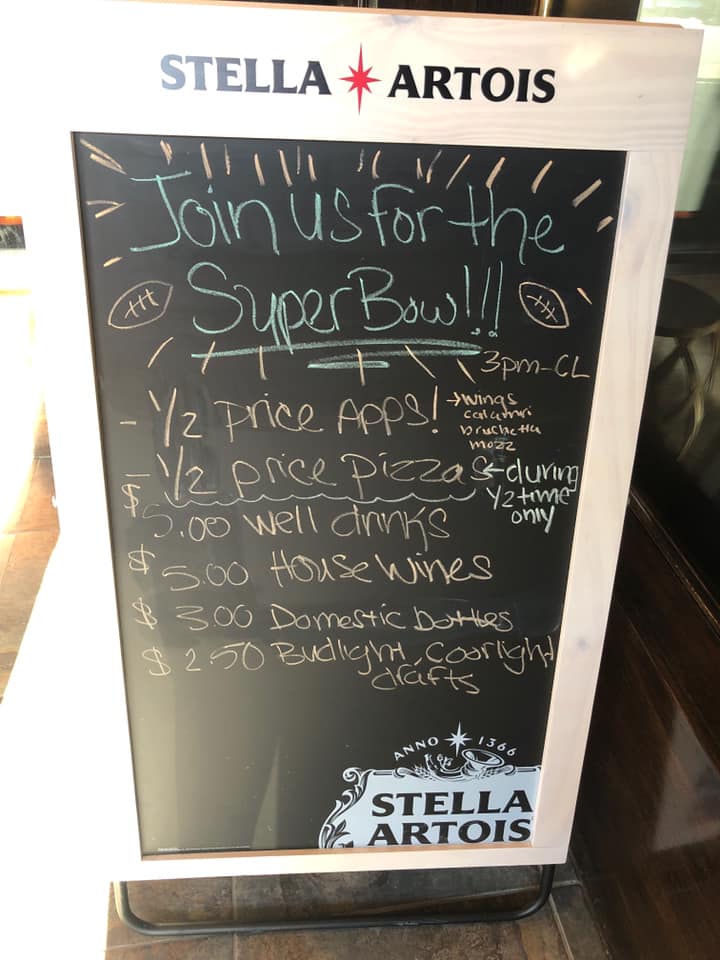 STELLA ARTOIS
Join us for the
Super Bowl!!!
3pm-CL
- 1/2 price Apps! →wings
calamari
bruchetta
mozz
- 1/2 price pizzas ←during
1/2 time
only
$5.00 well drinks
$5.00 House Wines
$3.00 Domestic bottles
$2.50 Budlight, Coorlight
drafts
ANNO 1366
STELLA
ARTOIS